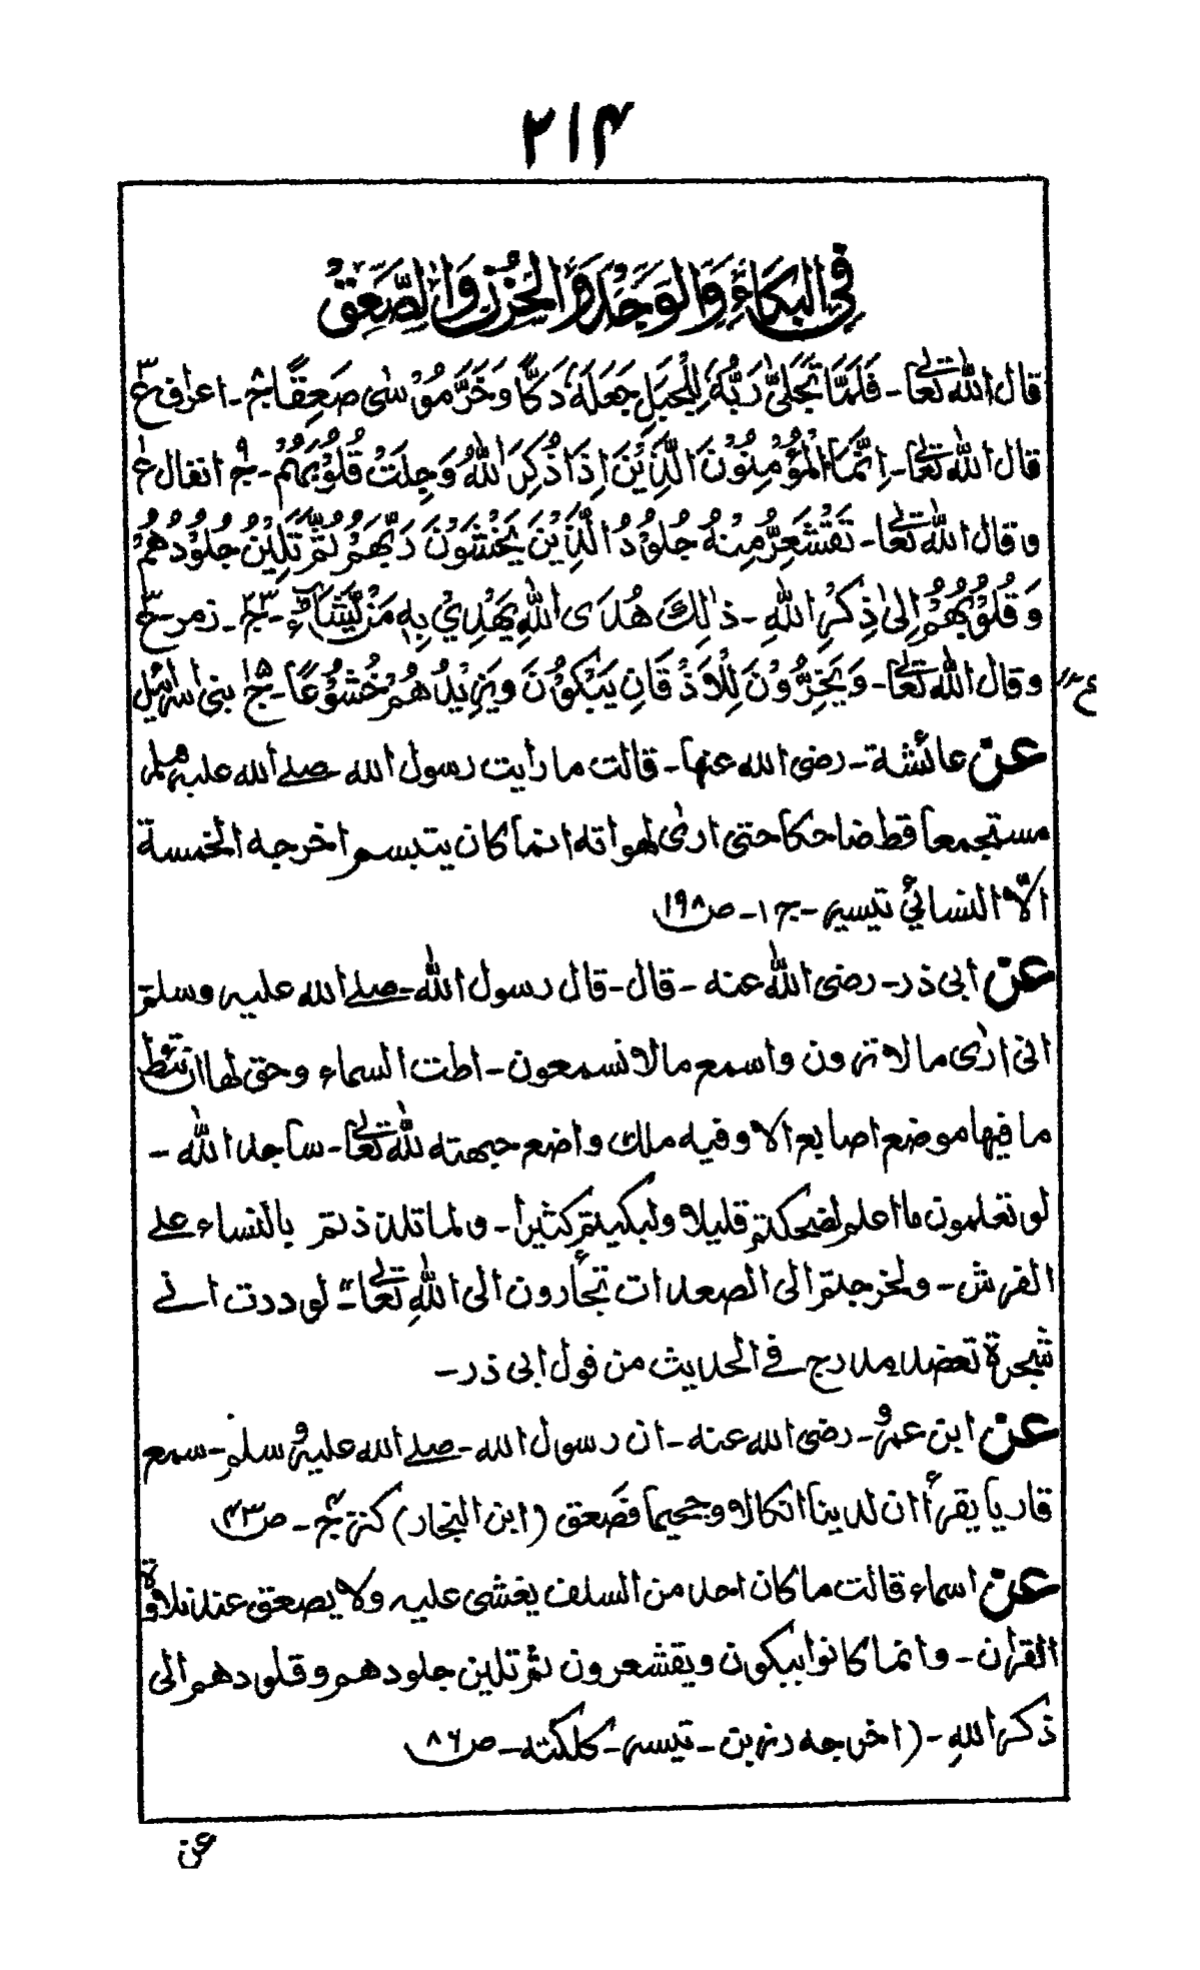 ٢١٤
في البكاءِ والوَجدِ والحُزنِ والصَّعِق
قال الله تعالىٰ۔ فَلَمَّا تَجَلّىٰ رَبُّهٗ لِلْجَبَلِ جَعَلَهٗ دَكًّا وَخَرَّ مُوْسٰى صَعِقًا ج۔ اعراف ع
قال الله تعالىٰ۔ اِنَّمَا الْمُؤْمِنُوْنَ الَّذِيْنَ اِذَا ذُكِرَ اللهُ وَجِلَتْ قُلُوْبُهُمْ۔ ج انفال ع
وقال الله تعالىٰ۔ تَقْشَعِرُّ مِنْهُ جُلُوْدُ الَّذِيْنَ يَخْشَوْنَ رَبَّهُمْ ثُمَّ تَلِيْنُ جُلُوْدُهُمْ
وَقُلُوْبُهُمْ اِلىٰ ذِكْرِ اللهِ۔ ذٰلِكَ هُدَى اللهِ يَهْدِيْ بِهٖ مَنْ يَّشَآءُ۔ ج ٢٣۔ زمر ع
وقال الله تعالىٰ۔ وَيَخِرُّوْنَ لِلْاَذْقَانِ يَبْكُوْنَ وَيَزِيْدُهُمْ خُشُوْعًا۔ ج ١٥ بنی اسرائيل
ع
عن عائشة۔ رضی الله عنها۔ قالت ما رايت رسول الله صلے الله عليه وسلم
مستجمعا قط ضاحكا حتى ارىٰ لهواته انما كان يتبسم اخرجه الخمسة
الّا النسائيّ تيسير۔ ج ١۔ ص ١٩٨
عن ابی ذر۔ رضی الله عنه ۔ قال۔ قال رسول الله۔ صلے الله عليه وسلم
انی ارٰى ما لا ترون واسمع مالا تسمعون۔ اطت السماء وحق لها ان تئط
ما فيها موضع اصابع الا وفيه ملك واضع جبهته لله تعالىٰ۔ ساجد الله ۔
لو تعلمون ما اعلم لضحكتم قليلا ولبكيتم كثيرا۔ ولما تلذذتم بالنساء علے
الفرش۔ ولخرجتم الى الصعدات تجأرون الى اللهِ تعالىٰ۔ لوددت انے
شجرة تعضد مدرج فے الحديث من قول ابی ذر۔
عن ابن عمرؓ۔ رضی الله عنه۔ ان رسول الله۔ صلے الله عليه وسلم۔ سمع
قاريا يقرأ ان لدينا انكالا وجحيما فصَعق (ابن النجار) كنز ج۔ ص ٤٣
عن اسماء قالت ما كان احد من السلف يغشى عليه ولا يصعق عند تلاوة
القراٰن۔ وانما كانوا يبكون ويقشعرون ثم تلين جلودهم وقلودهم الى
ذكر اللهِ۔ (اخرجه رزين۔ تيسر۔ كلكته۔ ص ٨٦
عن